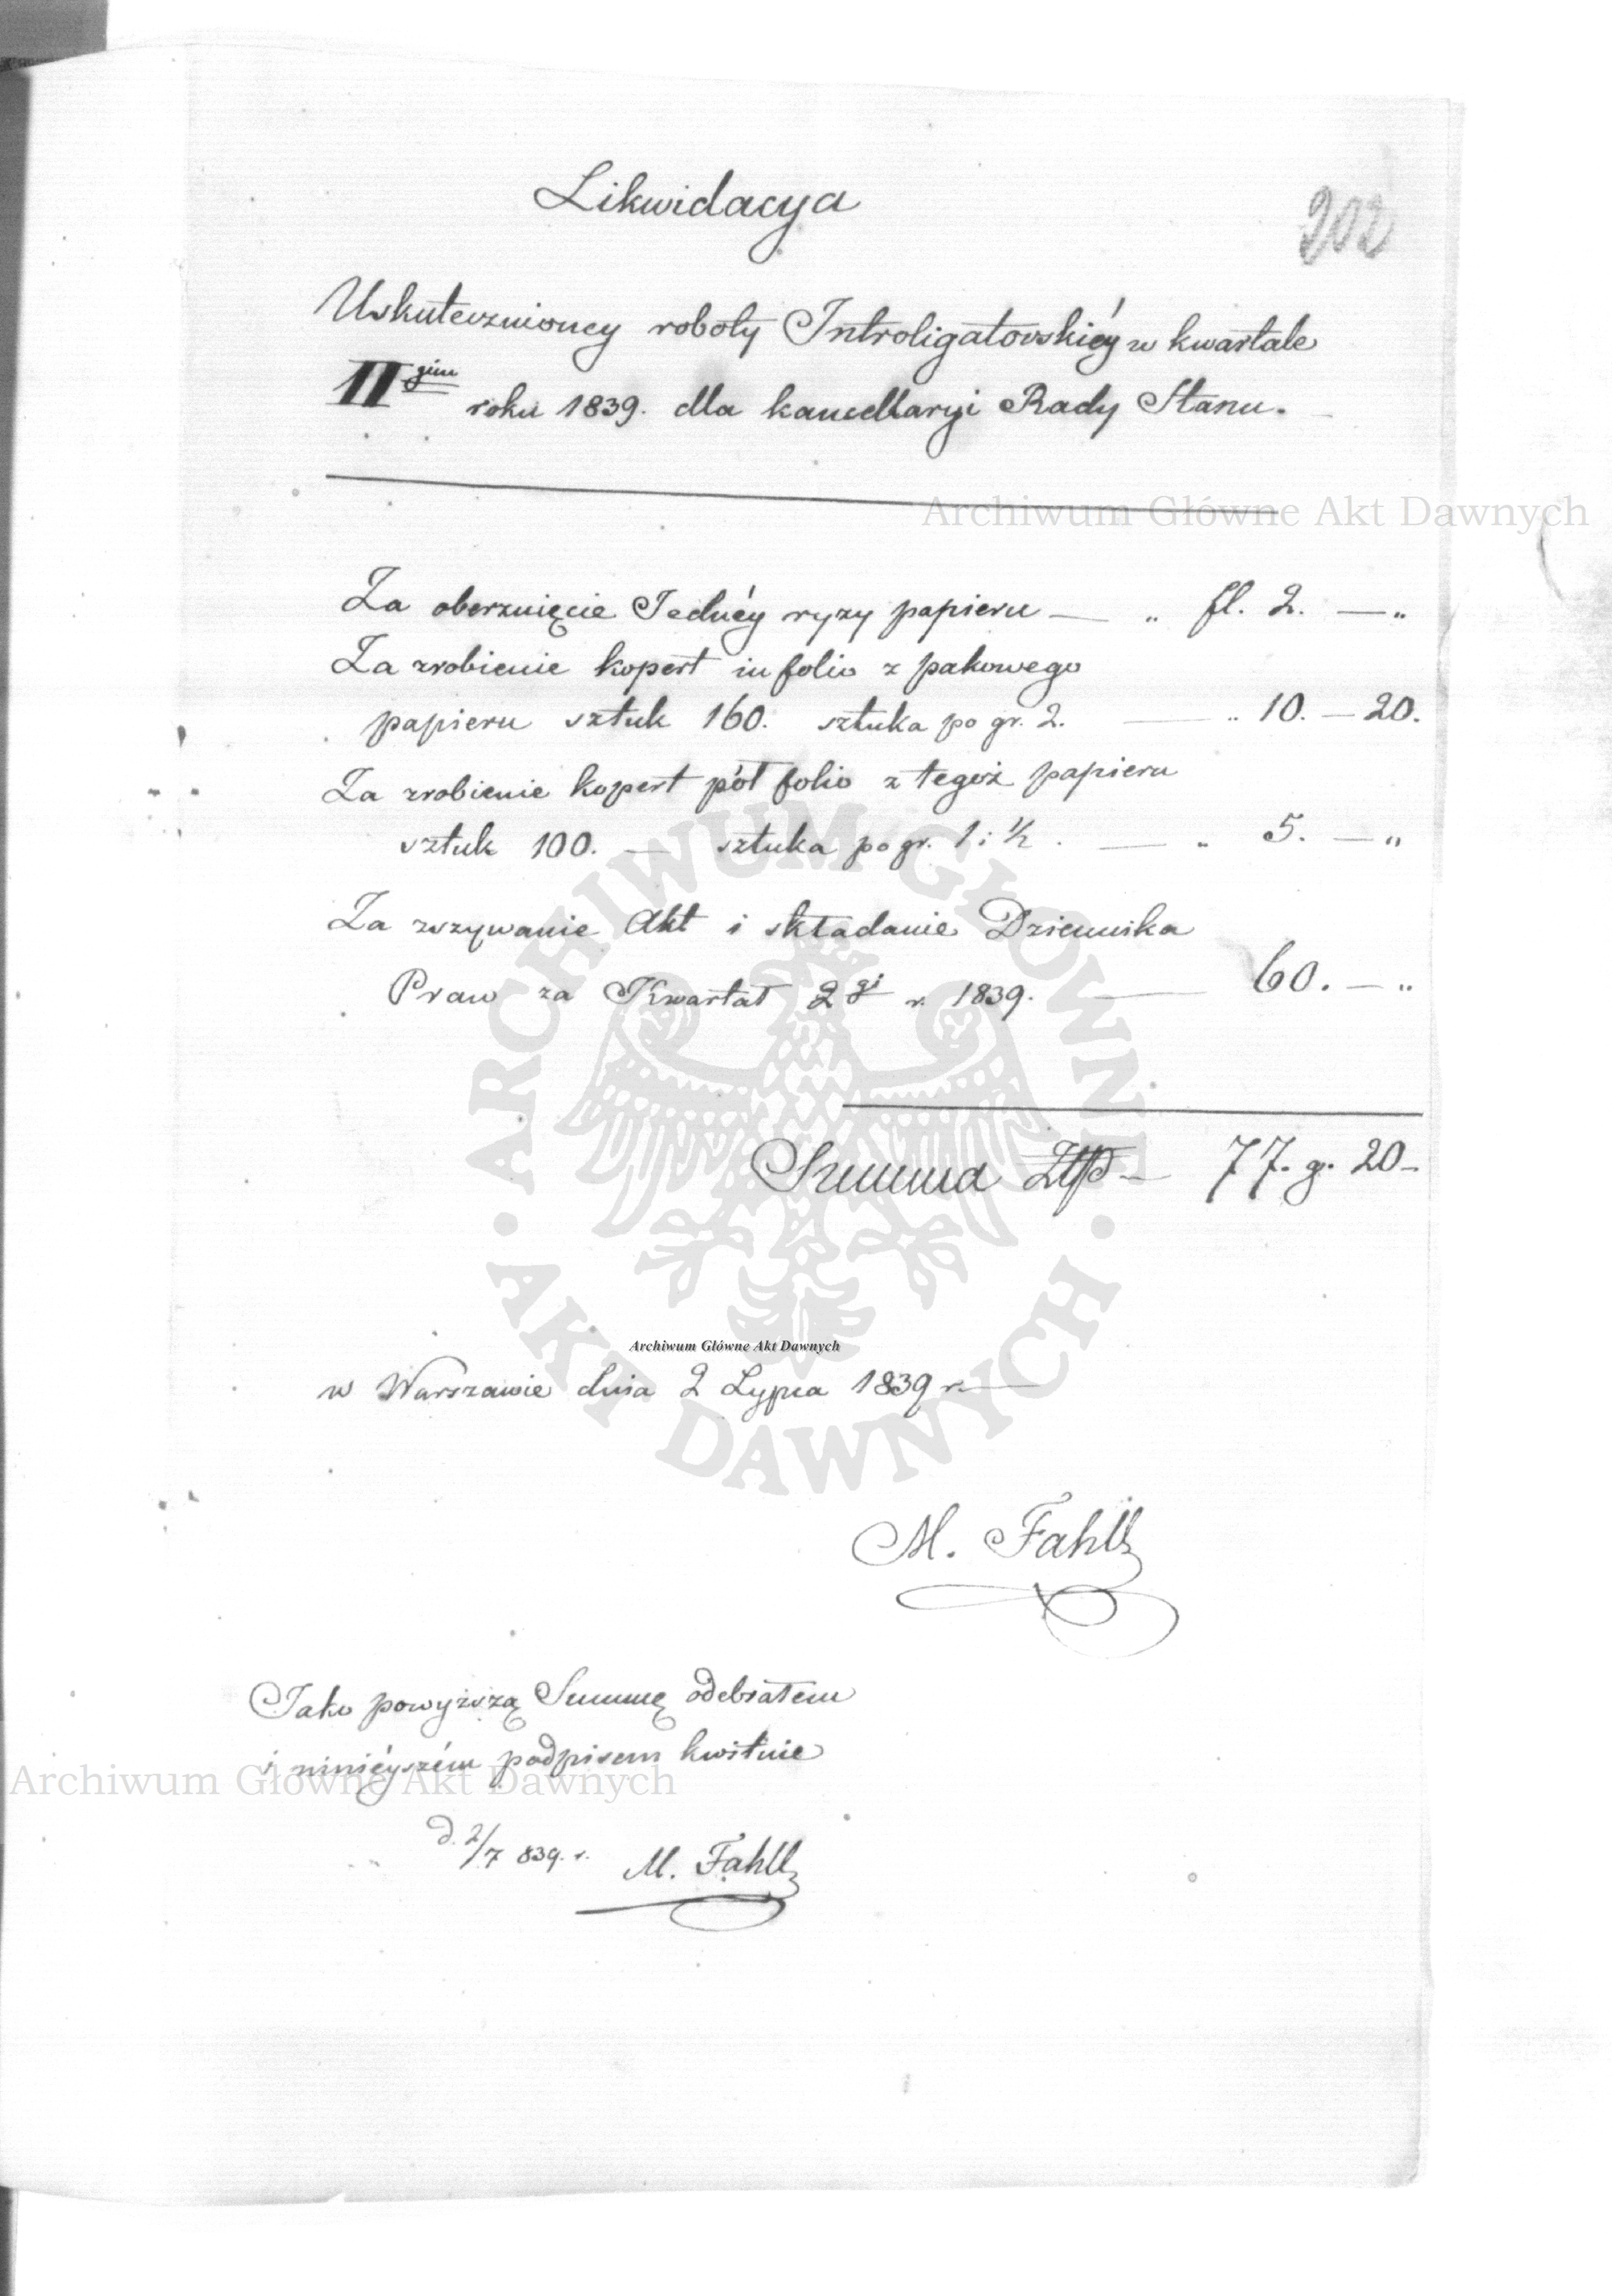 Likwidacya
202
Uskutecznioney roboty Introligatorskiéy w kwartale
II gim roku 1839. dla kancellaryi Rady Stanu.
Archiwum Główne Akt Dawnych
Za oberznięcie Jednéy ryzy papieru — „ fl. 2. — „
Za zrobienie kopert in folio z pakowego
papieru sztuk 160. sztuka po gr. 2. — „ 10. — 20.
Za zrobienie kopert pół folio z tegoż papieru
sztuk 100. — sztuka po gr. 1 i ½. — „ 5. — „
Za zszywanie Akt i składanie Dziennika
Praw za Kwartał 2 gi r. 1839. — 60. — „
Summa Złp — 77. g. 20 —
ARCHIWUM GŁÓWNE · AKT DAWNYCH ·
Archiwum Główne Akt Dawnych
w Warszawie dnia 2 Lypca 1839 r. —
M. Fahll
Jako powyższą Summę odebrałem
i ninieyszém podpisem kwituie
Archiwum Główne Akt Dawnych
d. 2/7 839. r. M. Fahll